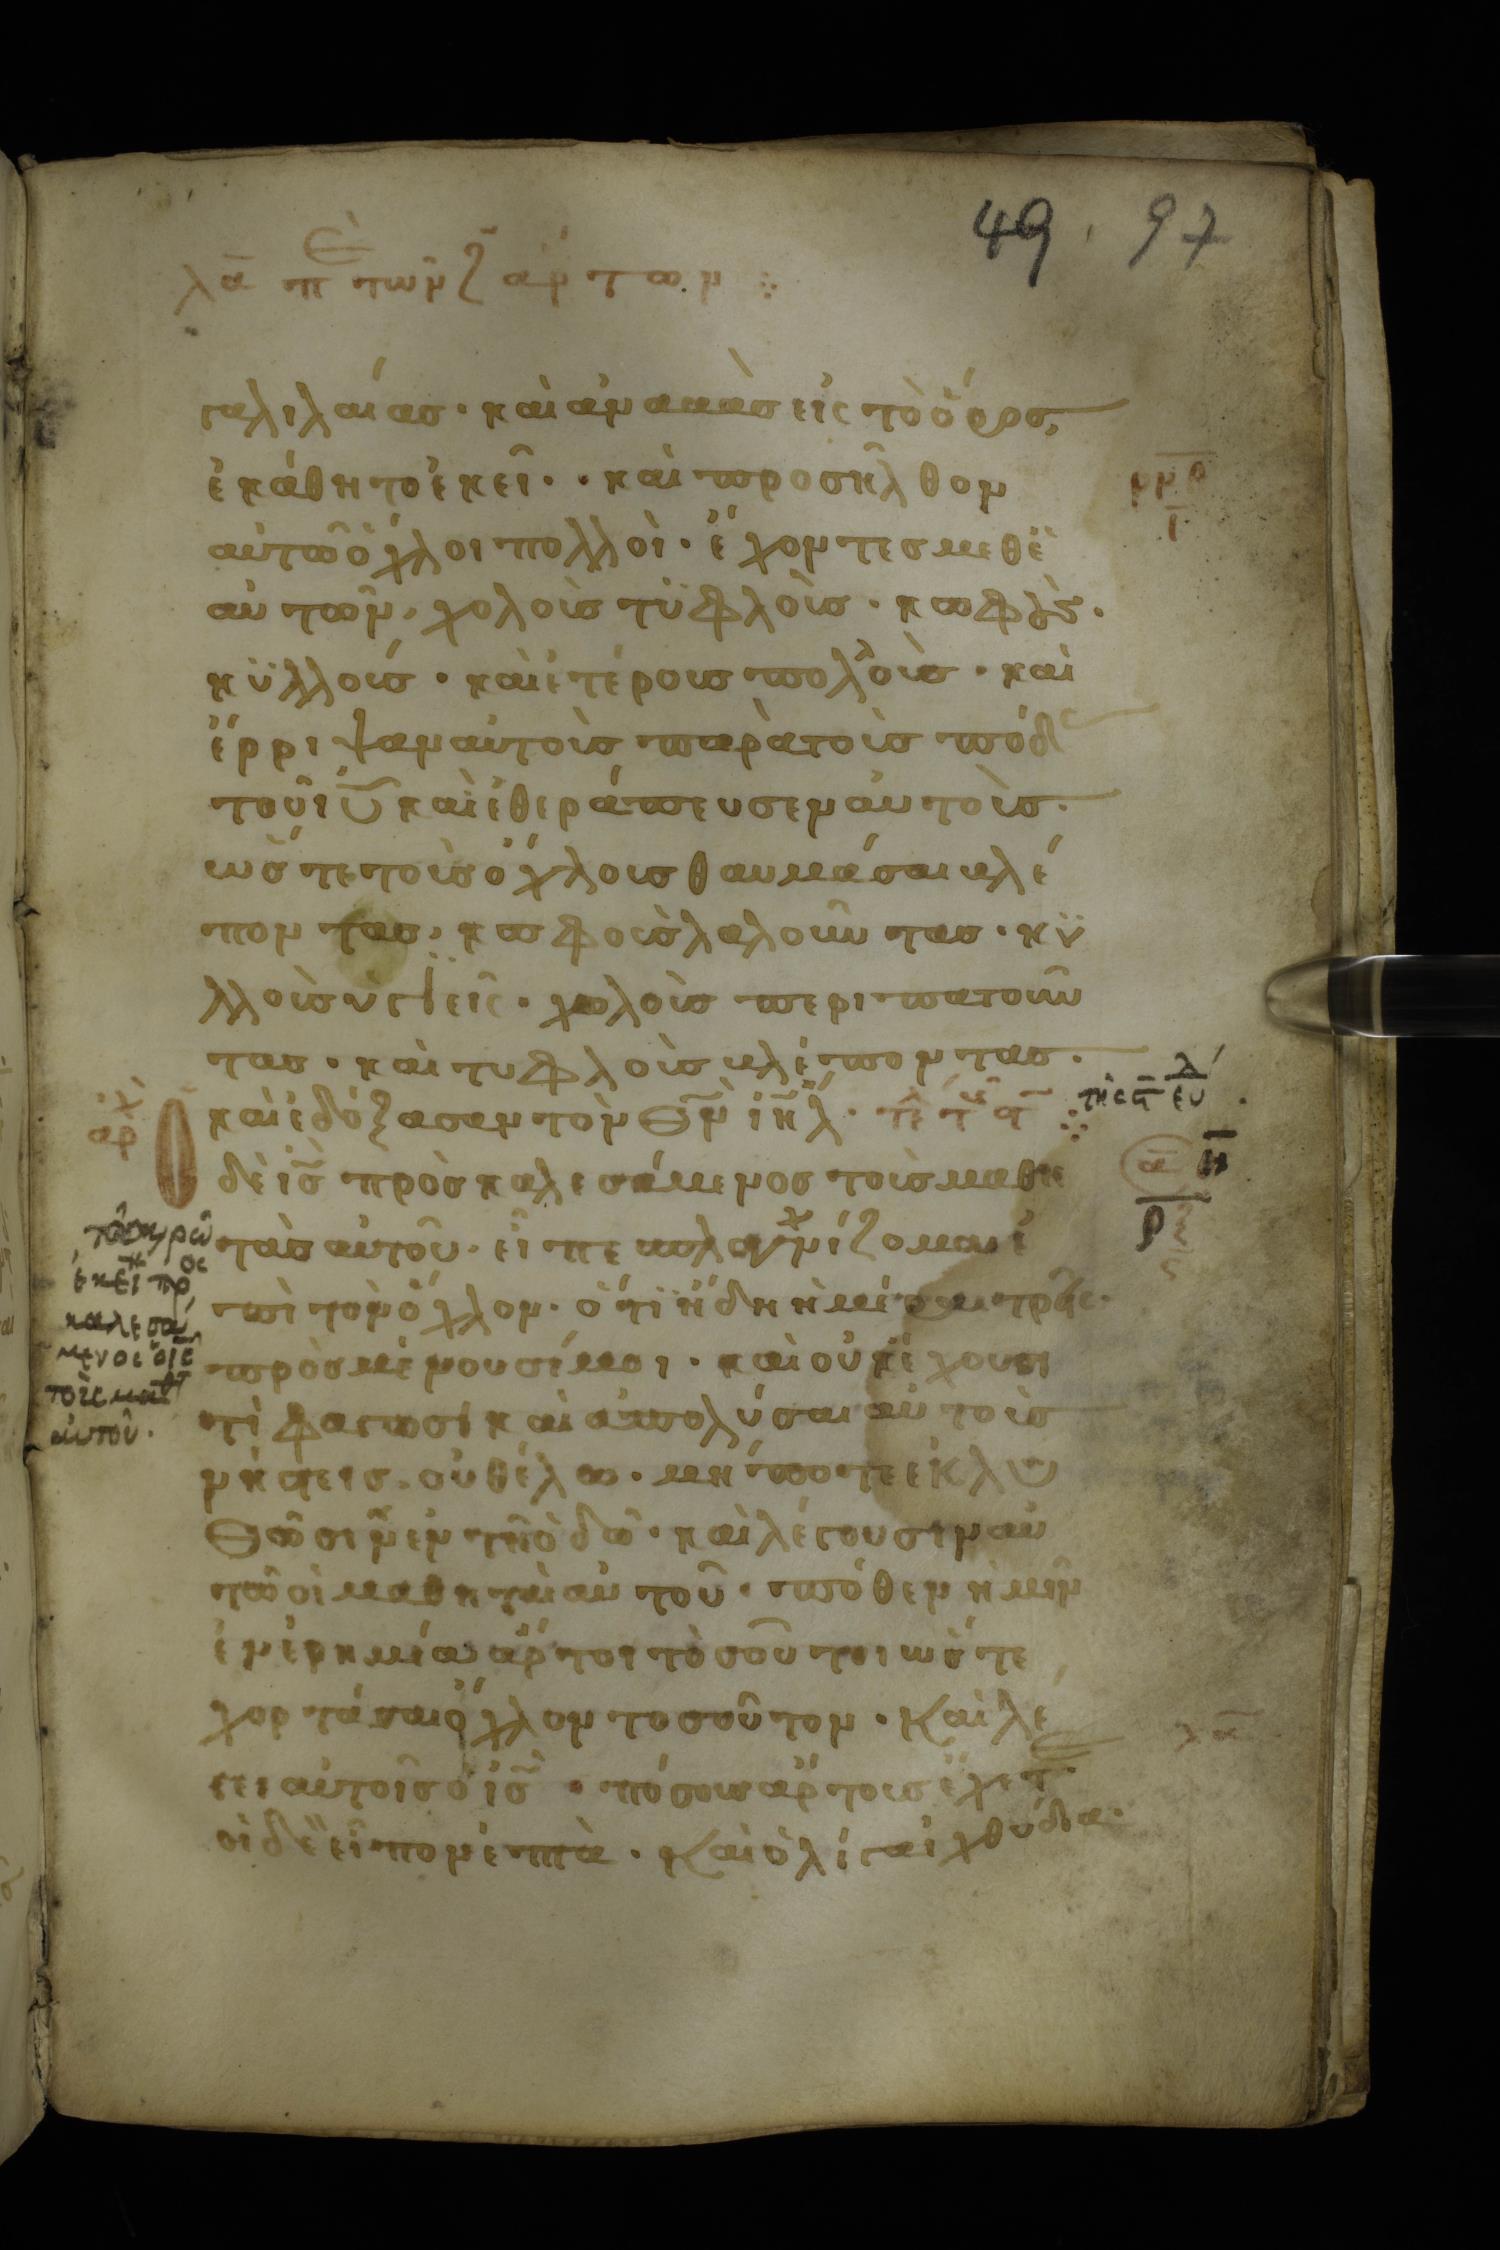 49 97
λα π τῶν ζ ἄρτων
γαλιλαίας· καὶ ἀναβὰς εἰς τὸ ὄρος,
ἐκάθητο ἐκεῖ· καὶ προσῆλθον
αὐτῶ ὄχλοι πολλοὶ· ἔχοντες μεθ ἑ
αυτῶν, χολοὶς τϋφλοὶς· κωφοὺς·
κϋλλοίς· καὶ ἑτέροις πολλοὶς· καὶ
ἔρριψαν αὐτοὶς παρὰ τοὶς πόδ
τοῦ ιυ καὶ ἐθεράπευσεν αὐτοὶς·
ὥστε τοὶς ὄχλοις θαυμάσαι βλέ
ποντας, κωφοὶς λαλοῦντας· κϋ
λλοὶς ὑγϊεῖς· χωλοὶς περιπατοῦν
τας· καὶ τυφλοὶς βλέποντας·
καὶ ἐδόξασαν τὸν θν ιηλ·
αρχ
Ὁ
δὲ ις πρὸσκαλεσάμενος τοὶς μαθη
τὰς αὐτοῦ· εἶπε σπλαγχνίζομαι ἐ
πὶ τὸν ὄχλον· ὅτϊ ἤδη ἡμέραι τρεῖς·
πρὸσμένουσί μοι· καὶ οὐκ ἔχουσι
τὶ φαγωσί καὶ ἀπολύσαι αὐτοὶς
νήστεις, οὐ θέλω· μήποτε ἐκλυ
θῶσιν ἐν τῆ ὁδῶ· καὶ λέγουσιν αὐ
τῶ οἱ μαθηταὶ αὐτοῦ· πόθεν ἡμῖν
ἐν ἐρημία ἄρτοι τὸσοῦτοι ὥστε
χορτάσαι ὄχλον τοσοῦτον· Καὶ λέ
γει αὐτοῖς ὁ ις· πόσοις ἄρτοις ἔχετ·
οἱ δὲ εἶπον ἑπτὰ· Καὶ ὀλίγα ἰχθύδια·
τῶ καιρῶ
ἐκεί προς
καλεσά
μενος ὁ ις
τοὶς μαθ
αὐτοῦ·
ρνθ
ι
α
η
ρξ
ς
λα